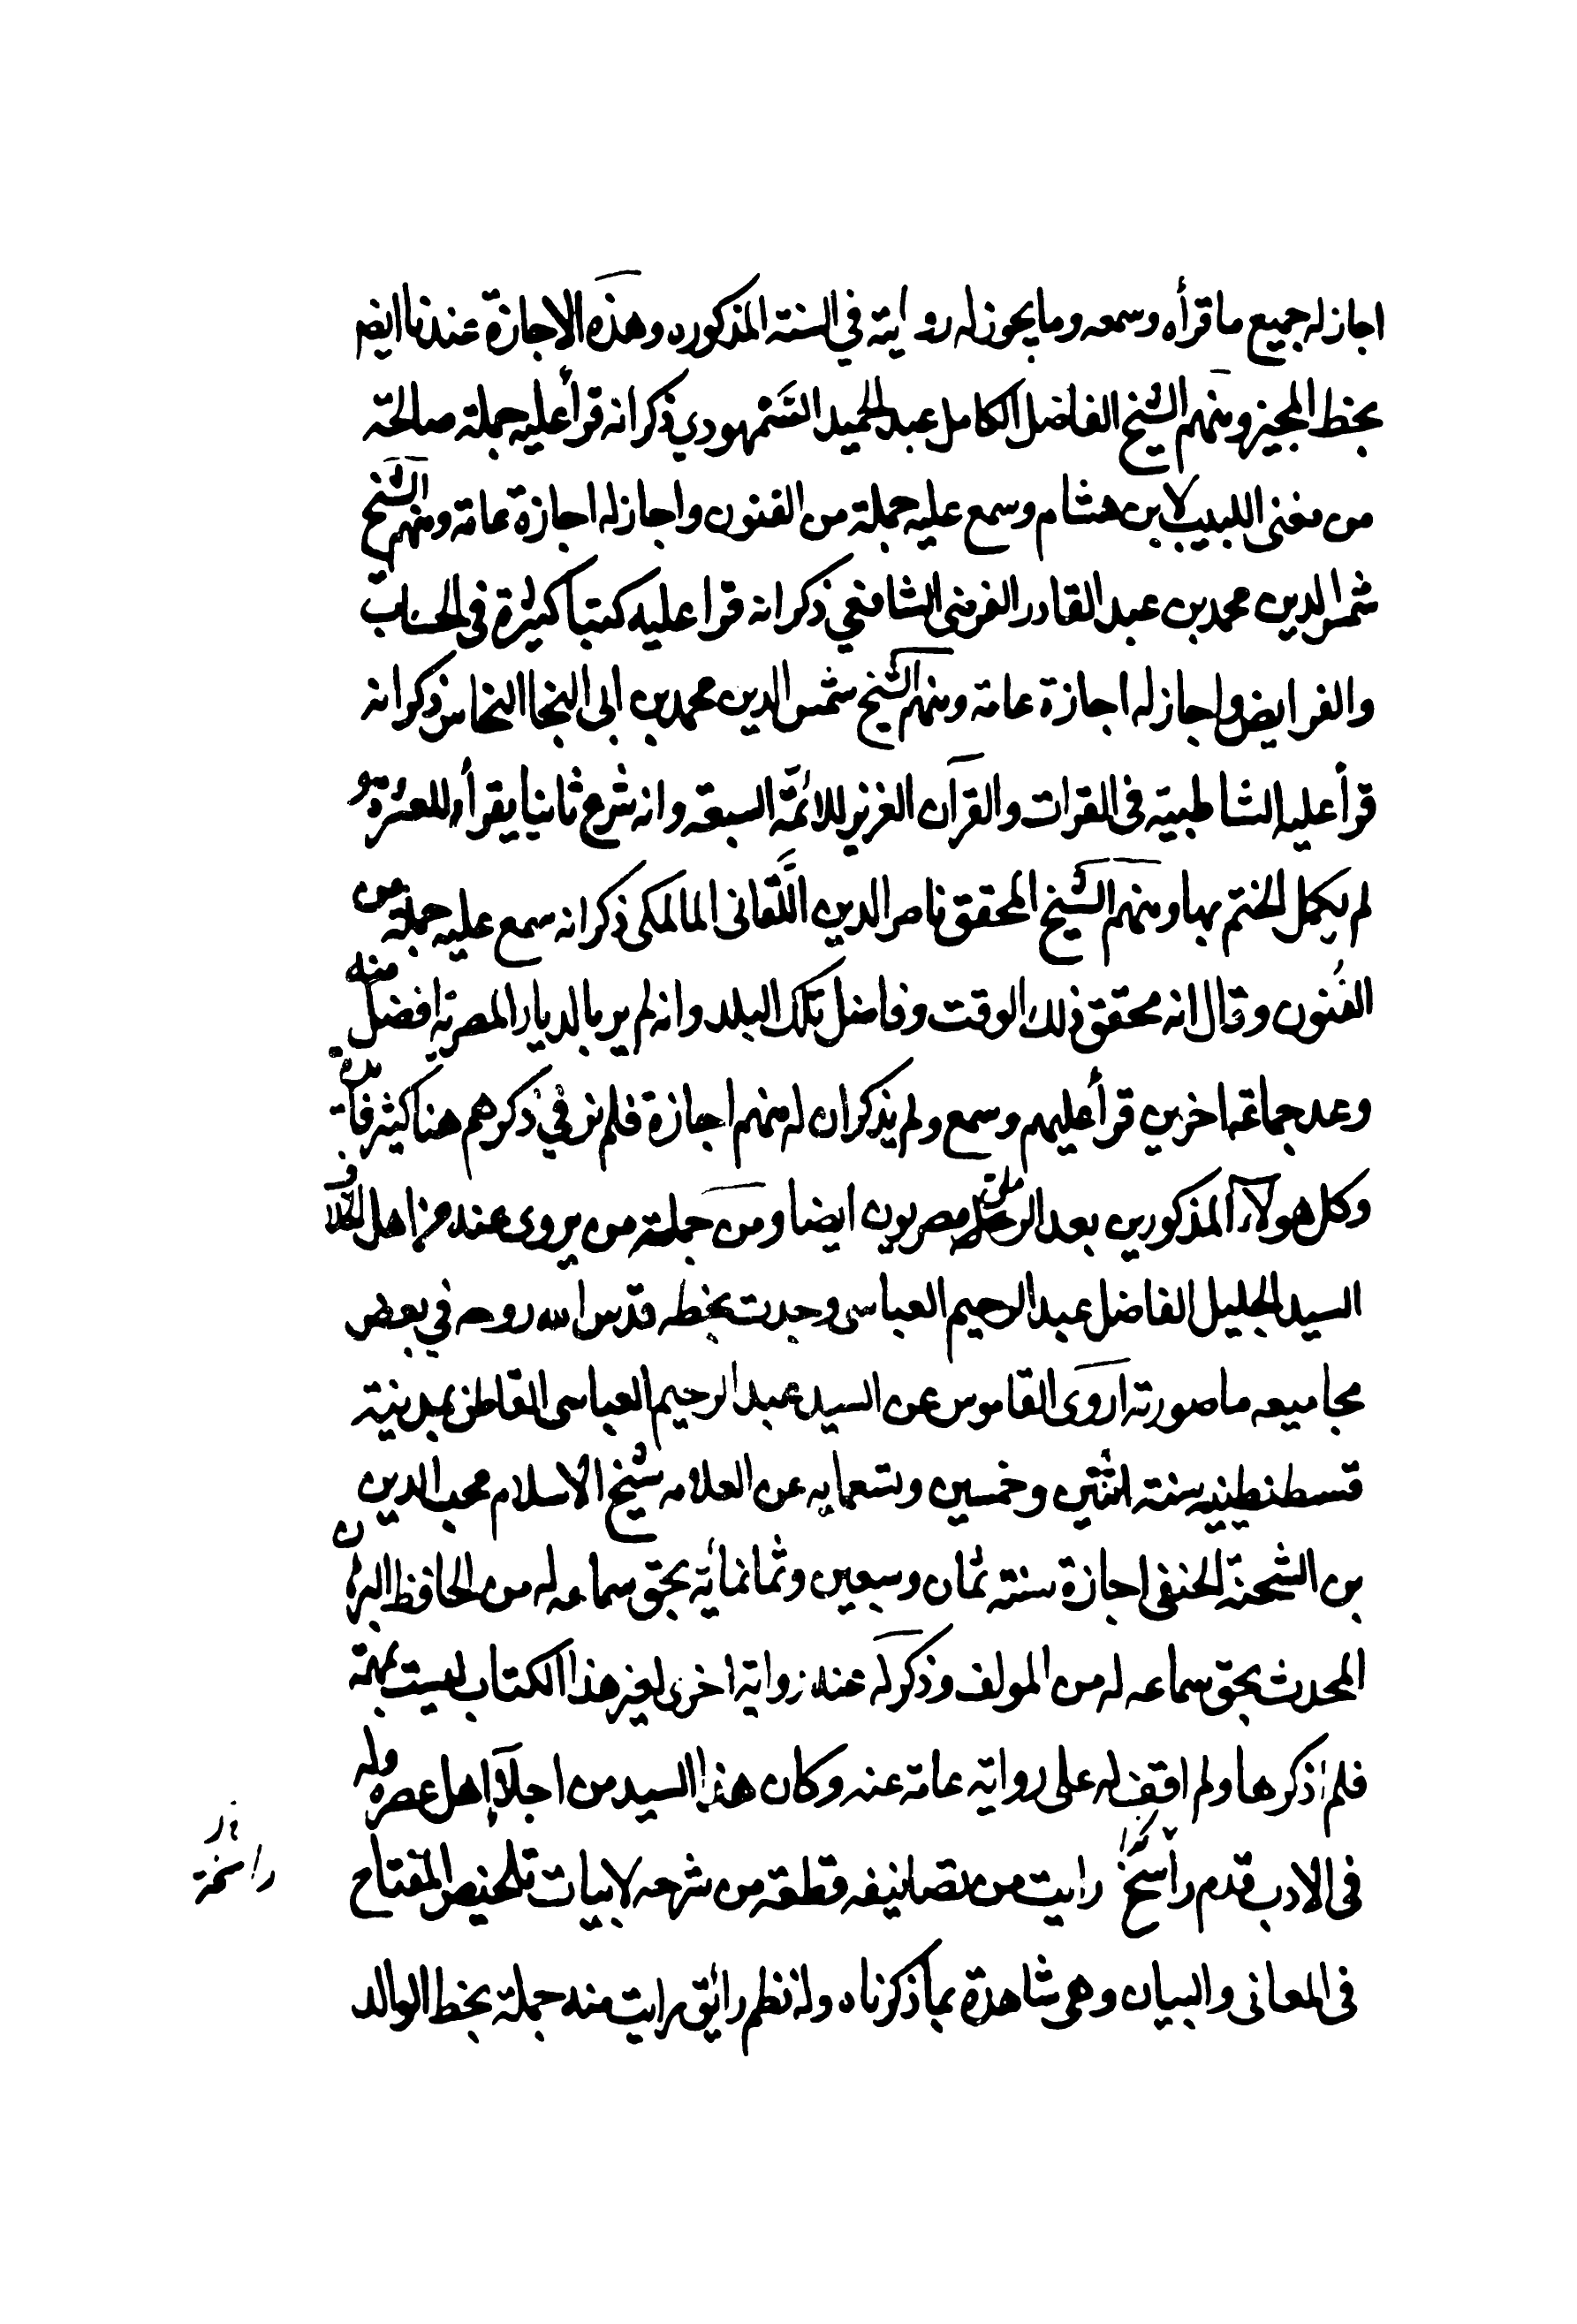 اجاز له جميع ما قرأه وسمعه وما يجوز له روايته في السنة المذكوره وهذه الاجازة عندنا ايضا
بخط المجيز ومنهم الشيخ الفاضل الكامل عبد الحميد السمهودي ذكر انه قرأ عليه جملة صالحة
من مغنى اللبيب لابن هشام وسمع عليه جملة من الفنون واجاز له اجازة عامة ومنهم الشيخ
شمس الدين محمد بن عبد القادر الفرضى الشافعي ذكر انه قرا عليه كتبا كثيرة فى الحساب
والفرايض واجاز له اجازة عامة ومنهم الشيخ شمس الدين محمد بن ابى النجا النحاس ذكر انه
قرأ عليه الشاطبية فى القرات والقرآن العزيز للائمة السبعة وانه شرع ثانيا يقرأ للعشرة و
لم يكمل الختم بها ومنهم الشيخ المحقق ناصر الدين اللقانى المالكى ذكر انه سمع عليه جملة من
الفنون وقال انه محقق ذلك الوقت وفاضل تلك البلد وانه لم ير بالديار المصرية افضل منه
وعد جماعة اخرين قرأ عليهم وسمع ولم يذكر ان له منهم اجازة فلم نر في ذكرهم هنا كثير فائدة
وكل هولاء المذكورين بعد الرملى مصريون ايضا ومن جملة من يروى عنه من اهل الخلاف
السيد الجليل الفاضل عبد الرحيم العباسى وجدت بخطه قدس الله روحه في بعض
مجاميعه ما صورته اروى القاموس عن السيد عبد الرحيم العباسى القاطن بمدينة
قسطنطينيه سنة اثنتين وخمسين وتسعمايه عن العلامه شيخ الاسلام محب الدين
بن الشحنة الحنفى اجازة سنة ثمان وسبعين وثمانمائة بحق سماعه له من الحافظ البرهان
المحدث بحق سماعه له من المولف وذكر له عنه رواية اخرى لغير هذا الكتاب ليست بمهمة
فلم اذكرها ولم اقف له على رواية عامة عنه وكان هذا السيد من اجلاء اهل عصره وله
فى الادب قدم راسخ كذا رايت من تصانيفه قطعة من شرحه لابيات تلخيص المفتاح
راسخة
فى المعانى والبيان وهى شاهدة بما ذكرناه وله نظم رائق رايت منه جملة بخط الوالد